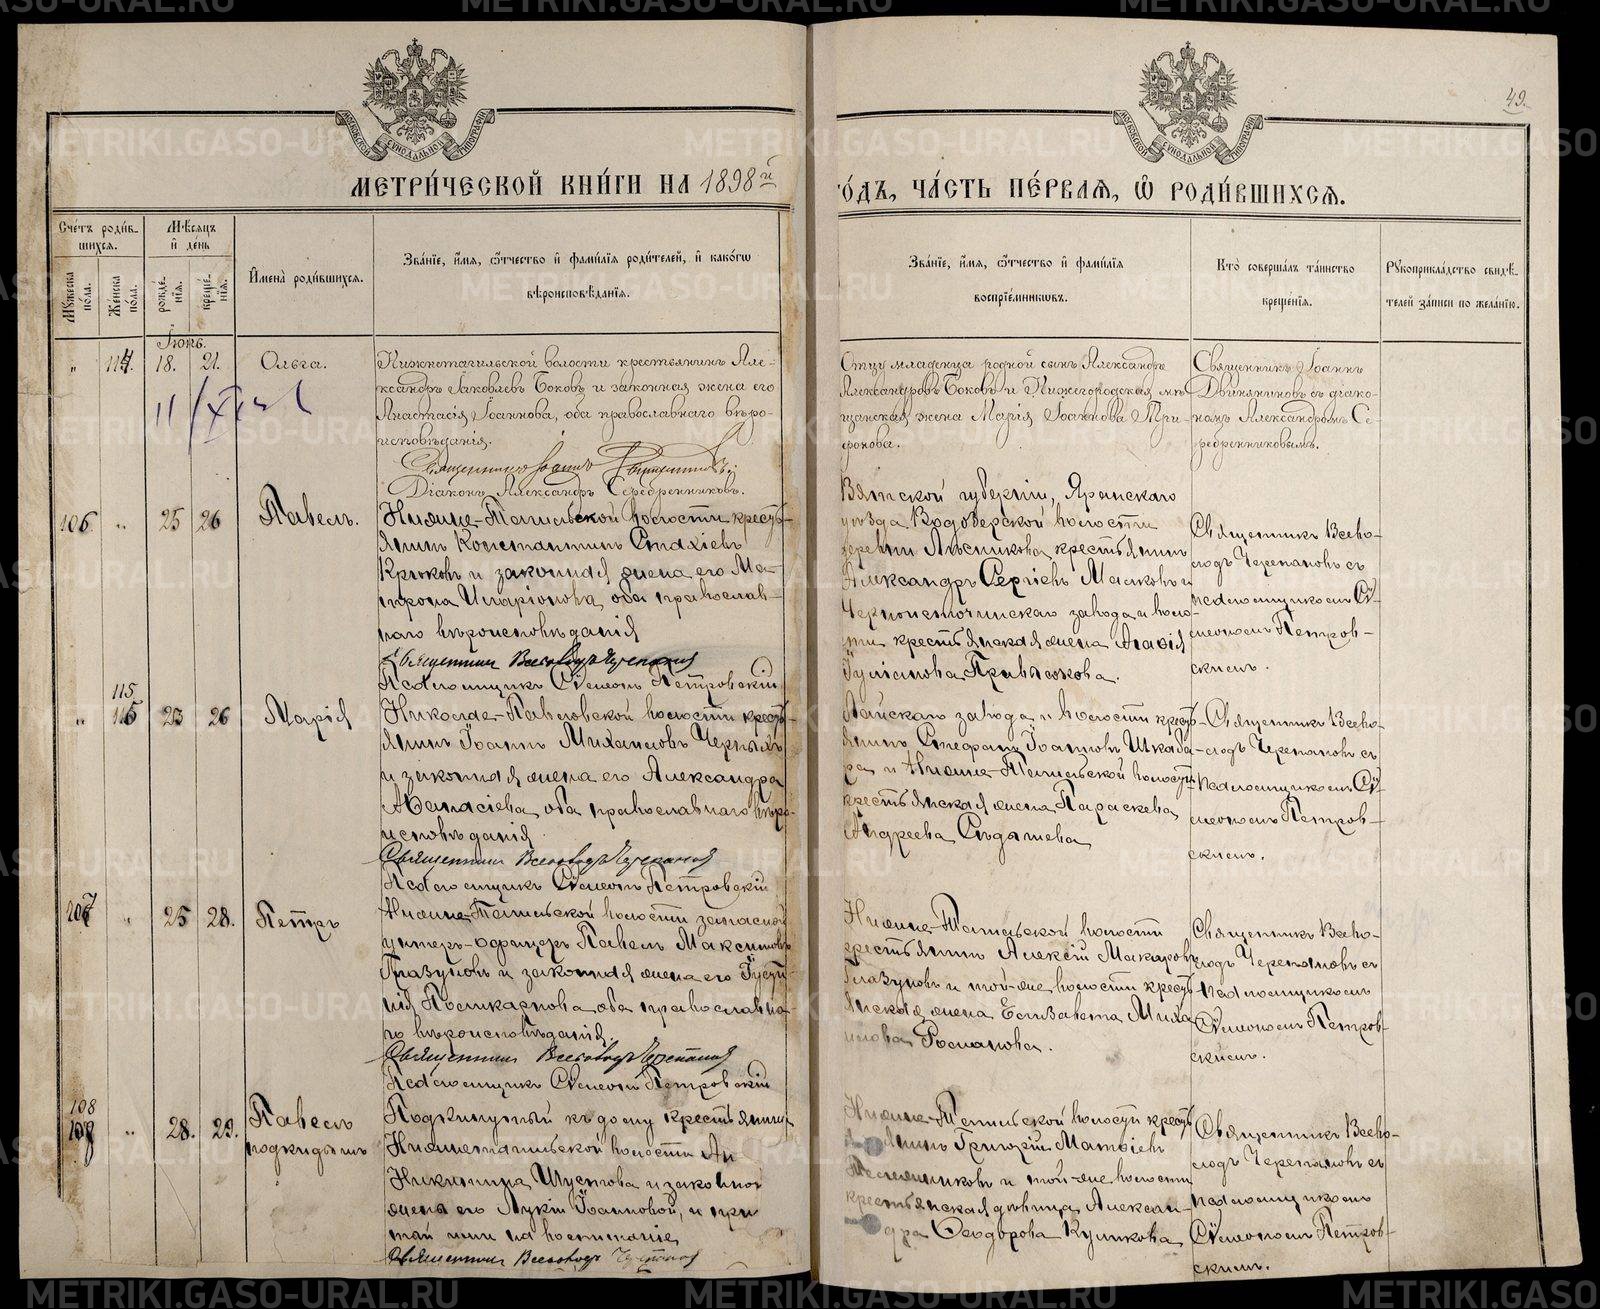 METRIKI.GASO-URAL.RU
49.
МОСКОВСКОЙ СѴНОДАЛЬНОЙ ТИПОГРАФІИ
МОСКОВСКОЙ СѴНОДАЛЬНОЙ ТИПОГРАФІИ
МЕТРИ́ЧЕСКОЙ КНИ́ГИ НА 1898й
ГО́ДЪ, ЧА́СТЬ ПЕ́РВАѦ, Ѡ҆ РОДИ́ВШИХСѦ.
Сче́тъ роди́в-
шихсѧ.
Мꙋ́жеска по́ла.
Же́нска по́ла.
Мѣ́сѧцъ и҆ де́нь
рожде́-нїѧ.
креще́-нїѧ.
И҆мена̀ роди́вшихсѧ.
Зва́нїе, и҆́мѧ, ѻ҆́тчество и҆ фамилїѧ роди́телей, и҆ како́гѡ
вѣроисповѣ́данїѧ.
Зва́нїе, и҆́мѧ, ѻ҆́тчество и҆ фамилїѧ
воспрїе́мникѡвъ.
Кто̀ соверша́лъ та́инство
креще́нїѧ.
Рꙋкоприкла́дство свидѣ́-
телей за́писи по жела́нїю.
Іюнь.
" 114. 18. 21. Ольга.
Нижнетагильской волости крестьянинъ Але-
ксандръ Іаковлевъ Боковъ и законная жена его
Анастасія Іоаннова, оба православнаго вѣро-
исповѣданія.
Священникъ Іоаннъ
Діаконъ Александръ Серебренниковъ.
Отцу младенца родной сынъ Александръ
Александровъ Боковъ и Нижегородская мѣ-
щанская жена Марія Іоаннова Три-
фонова.
Священникъ Іоаннъ
Двиняниновъ съ діако-
номъ Александромъ Се-
ребренниковымъ.
106. " 25 26 Павелъ.
Нижне-Тагильской волости кресть-
янинъ Константинъ Стахіевъ
Крюковъ и законная жена его Ма-
трона Иларіонова, оба православ-
наго вѣроисповѣданія
Священникъ Всеволодъ Черепановъ
Псаломщикъ Сѵмеонъ Петровскій
Вятской губерніи, Яранскаго
уѣзда Кодозерской волости
деревни крестьянинъ
Александръ Сергіевъ Малковъ и
Черноисточинскаго завода и воло-
сти крестьянская жена
Іуліанова
Священникъ Всево-
лодъ Черепановъ съ
псаломщикомъ Сѵ-
меономъ Петров-
скимъ.
" 115 23 26 Марія
Николае-Павловской волости кресть-
янинъ Іоаннъ Михаиловъ Черныхъ
и законная жена его Александра
Аѳанасіева, оба православнаго вѣро-
исповѣданія
Священникъ Всеволодъ Черепановъ
Псаломщикъ Сѵмеонъ Петровскій
Лайскаго завода и волости кресть-
янинъ Стефанъ Іоанновъ Шкаба-
ра и Нижне-Тагильской волости
крестьянская жена Параскева
Андреева Сѣдышева
Священникъ Всево-
лодъ Черепановъ съ
псаломщикомъ Сѵ-
меономъ Петров-
скимъ.
107 " 25 28. Петръ
Нижне-Тагильской волости запасной
унтеръ-офицеръ Павелъ Максимовъ
Глазуновъ и законная жена его Іусти-
нія Поликарпова, оба православна-
го вѣроисповѣданія.
Священникъ Всеволодъ Черепановъ
Псаломщикъ Сѵмеонъ Петровскій
Нижне-Тагильской волости
крестьянинъ Алексій Макаровъ
Глазуновъ и той-же волости кресть-
янская жена Елизавета Миха-
илова Романова.
Священникъ Всево-
лодъ Черепановъ съ
псаломщикомъ
Сѵмеономъ Петров-
скимъ.
108 " 28. 29. Павелъ
подкидышъ
Подкинутый къ дому крестьянина
Нижнетагильской волости
Никитина Шустова и законной
жены его Лукіи Іоанновой, и при
той на воспитаніе
Священникъ Всеволодъ Черепановъ
Нижне-Тагильской волости кресть-
янинъ Григорій Матѳіевъ
и той-же волости
крестьянская дѣвица Алексан-
дра Ѳеодорова Куликова
Священникъ Всево-
лодъ Черепановъ съ
псаломщикомъ
Сѵмеономъ Петров-
скимъ.